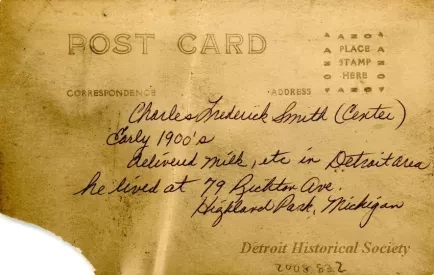 POST CARD
AZO
PLACE
STAMP
HERE
AZO
CORRESPONDENCE
ADDRESS
Charles Frederick Smith (Center)
Early 1900's
delivered milk, etc in Detroit area
he lived at 79 Richton Ave.
Highland Park, Michigan
Detroit Historical Society
2008.832